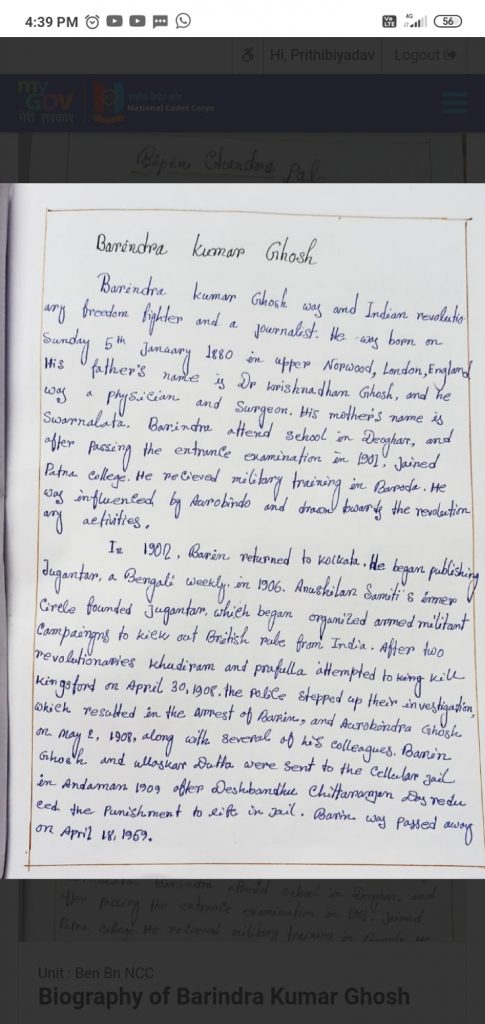 4:39 PM
Vo LTE
4G
56
Hi, Prithibiyadav
Logout
my GOV
मेरी सरकार
राष्ट्रीय कैडेट कोर
National Cadet Corps
Bipin Chandra Pal
Barindra kumar Ghosh
Barindra kumar Ghosh way and Indian revolutio
ary freedom fighter and a journalist. He way born on
Sunday 5th January 1880 in upper Norwood, London, England
His father's name is Dr krishnadhan Ghosh, and he
way a physician and Surgeon. His mother's name is
Swarnalata. Barindra attend school in Deoghar, and
after passing the entrance examination in 1901, joined
Patna college. He recieved military training in Baroda. He
way influenced by Aurobindo and drawn towards the revolution
ary activities.
In 1902, Barin returned to Kolkata. He began publishing
Jugantar, a Bengali weekly. in 1906. Anushilan Samiti's inner
Circle founded Jugantar, which began organized armed militant
Campaigns to kick out British rule from India. After two
revolutionaries Khudiram and prafulla attempted to king kill
kingsford on April 30, 1908, the Police stepped up their investigation,
which resulted in the arrest of Barin, and Aurobindra Ghosh
on may 2, 1908, along with several of his colleagues. Barin
Ghosh and ullaskar Dutta were sent to the Cellular jail
in Andaman 1909 after Deshbandhu Chittaranjan Das redu
ced the Punishment to life in jail. Barin way passed away
on April 18, 1959.
Barindra attend school in Deoghar, and
after passing the entrance examination in 1901, joined
Patna college. He recieved military training in
Unit : Ben Bn NCC
Biography of Barindra Kumar Ghosh